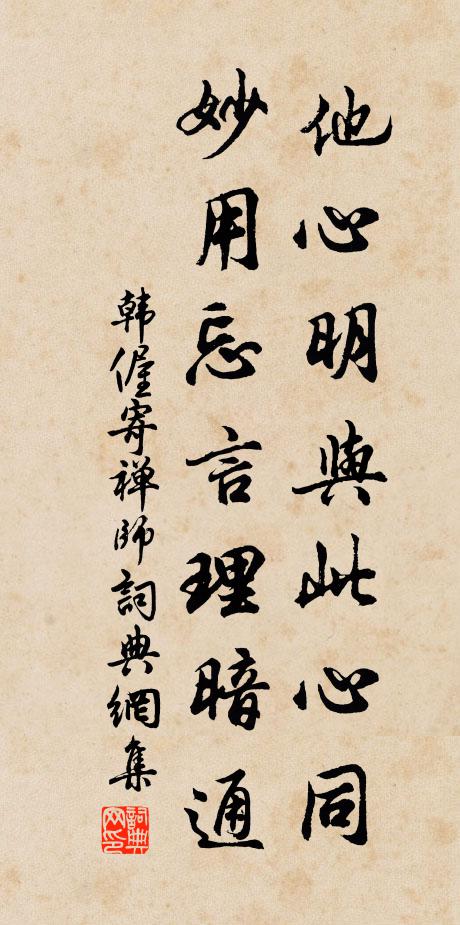 他心明與此心同
妙用忘言理暗通
韩偓寄禅师詞典網集
詞典网印